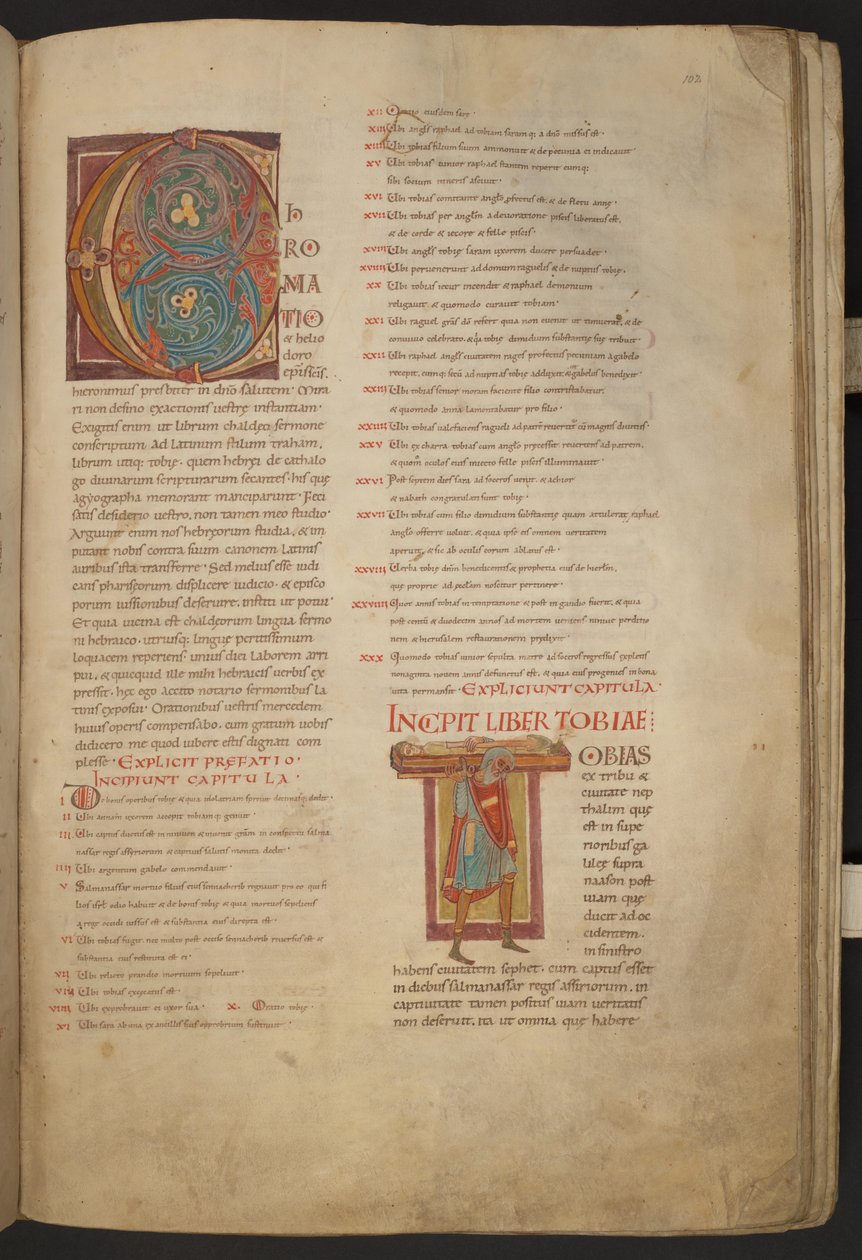 102
C
h
RO
MA
TIO
& helio
doro
ep̄iscis.
hieronimus presbiter in dn̄o salutem. Mira
ri non desino exactionis uestrę instantiam.
Exigitis enim ut librum chaldeo sermone
conscriptum ad latinum stilum traham,
librum utiq; tobię. quem hebręi de cathalo
go diuinarum scripturarum secantes. his quę
agyographa memorant manciparunt. Feci
satis desiderio uestro, non tamen meo studio.
Arguunt enim nos hebręorum studia, & im
putant nobis contra suum canonem latinis
auribus ista transferre. Sed melius esse iudi
cans phariseorum displicere iudicio. & episco
porum iussionibus deseruire, institi ut potui.
Et quia uicina est chaldeorum lingua sermo
ni hebraico. utriusq; linguę peritissimum
loquacem reperiens. unius diei laborem arri
pui, & quicquid ille mihi hebraicis uerbis ex
pressit. hęc ego accito notario sermonibus la
tinis exposui. Orationibus uestris mercedem
huius operis compensabo. cum gratum uobis
didicero me quod iubere estis dignati com
plesse. EXPLICIT PREFATIO.
INCIPIUNT CAPITULA.
I De bonis operibus tobię & quia idolatriam spreuit decimasq; dedit.
II Ubi annam uxorem accepit tobiamq; genuit.
III Ubi captus ductus est in niniuen & inuenit grām in conspectu salma
nassar regis assyriorum & captiuis salutis monita dedit.
IIII Ubi argentum gabelo commendauit.
V Salmanassar mortuo filius eius sennacherib regnauit pro eo qui fi
lios isrł odio habuit & de bonis tobię & quia mortuos sepeliens
a rege occidi iussus est & substantia eius direpta est.
VI Ubi tobias fugit. nec multo post occiso sennacherib reuersus est &
substantia eius restituta est ei.
VII Ubi relicto prandio mortuum sepeliuit.
VIII Ubi tobias excęcatus est.
VIIII Ubi exprobrauit ei uxor sua. X. Oratio tobię.
XI Ubi sara ab una ex ancillis suis opprobrium sustinuit.
XII Oratio eiusdem sarę.
XIII Ubi angl̄s raphael ad tobiam saramq; a dn̄o missus est.
XIIII Ubi tobias filium suum ammonuit & de pecunia ei indicauit.
XV Ubi tobias iunior raphael stantem reperit eumq;
sibi socium itineris asciuit.
XVI Ubi tobias comitante angl̄o pfectus est, & de fletu annę.
XVII Ubi tobias per angl̄m a deuoratione piscis liberatus est,
& de corde & iecore & felle piscis.
XVIII Ubi angl̄s tobię saram uxorem ducere persuadet.
XVIIII Ubi peruenerunt ad domum raguelis & de nuptiis tobię.
XX Ubi tobias iecur incendit & raphael demonium
religauit. & quomodo curauit tobiam.
XXI Ubi raguel grās dō refert quia non euenit ut timuerat. & de
conuiuio celebrato. & q̄a tobię dimidium substantię suę tribuit.
XXII Ubi raphael angl̄s ciuitatem rages profectus pecuniam a gabelo
recepit. eumq; secū ad nuptias tobię adduxit. & gabelus benedixit.
XXIII Ubi tobias senior moram faciente filio contristabatur.
& quomodo anna lamentabatur pro filio.
XXIIII Ubi tobias ualefaciens ragueli ad patrē reuertit cū magnis diuitiis.
XXV Ubi ex charra tobias cum angl̄o pręcessit reuertens ad patrem.
& quom̄ oculos eius inuecto felle piscis illuminauit.
XXVI Post septem dies sara ad soceros uenit. & achior
& nabath congratulati sunt tobię.
XXVII Ubi tobias cum filio dimidium substantię quam attulerat raphael
angl̄o offerre uoluit. & quia ipse eis omnem ueritatem
aperuit. & sic ab oculis eorum ablatus est.
XXVIII Uerba tobię dn̄m benedicentis & prophetia eius de hierłm.
quę proprie ad ęccłam noscitur pertinere.
XXVIIII Quot annis tobias in temptatione & post in gaudio fuerit. & quia
post centū & duodecim annos ad mortem ueniens niniue perditio
nem & hierusalem restaurationem predixit.
XXX Quomodo tobias iunior sepulta matre ad soceros regressus expletis
nonaginta nouem annis defunctus est. & quia eius progenies in bona
uita permansit. EXPLICIUNT CAPITULA.
INCIPIT LIBER TOBIAE
T
OBIAS
ex tribu &
ciuitate nep
thalim quę
est in supe
rioribus ga
lileę supra
naason post
uiam quę
ducit ad oc
cidentem.
in sinistro
habens ciuitatem sephet. cum captus esset
in diebus salmanassar regis assiriorum. in
captiuitate tamen positus uiam ueritatis
non deseruit. ita ut omnia quę habere